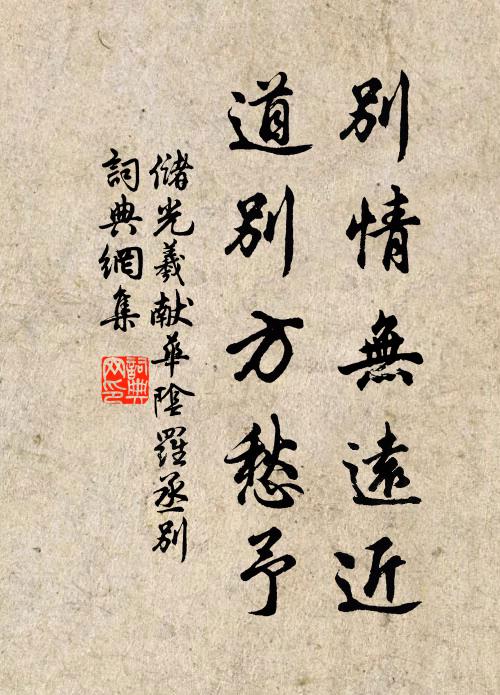 別情無遠近
道別方愁予
儲光羲献華陰羅丞別
詞典網集
詞典
网印